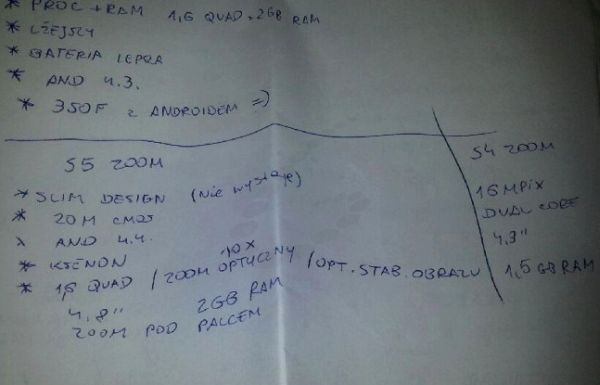 * PROC + RAM 1,6 QUAD + 2GB RAM
* LŻEJSZY
* BATERIA LEPSZA
* AND 4.3.
* 350F z ANDROIDEM =)
S5 ZOOM
* SLIM DESIGN (Nie wystaje)
* 20M CMOS
* AND 4.4.
* KSENON
* 1,6 QUAD / ZOOM OPTYCZNY 10x / OPT. STAB. OBRAZU
4,8" 2GB RAM
ZOOM POD PALCEM
S4 ZOOM
16 MPIX
DUAL CORE
4,3"
1,5 GB RAM